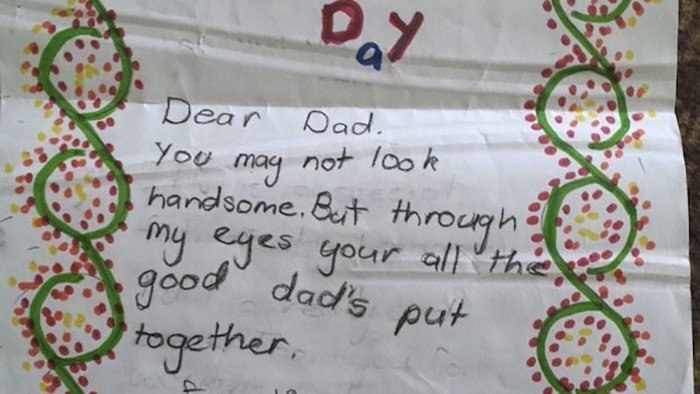 DaY
Dear Dad.
You may not look
handsome. But through
my eyes your all the
good dad's put
together.